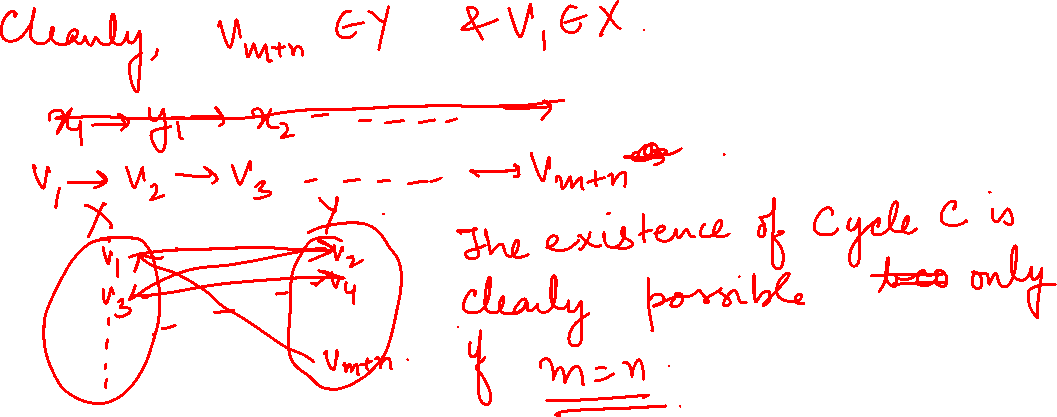 Clearly, V_{m+n} ∈ Y & V_1 ∈ X.
x_1 → y_1 → x_2 ----- →
V_1 → V_2 → V_3 ----- → V_{m+n}
X Y
V_1 V_2
V_3 V_4
V_{m+n}
The existence of Cycle C is
clearly possible only
if m = n.